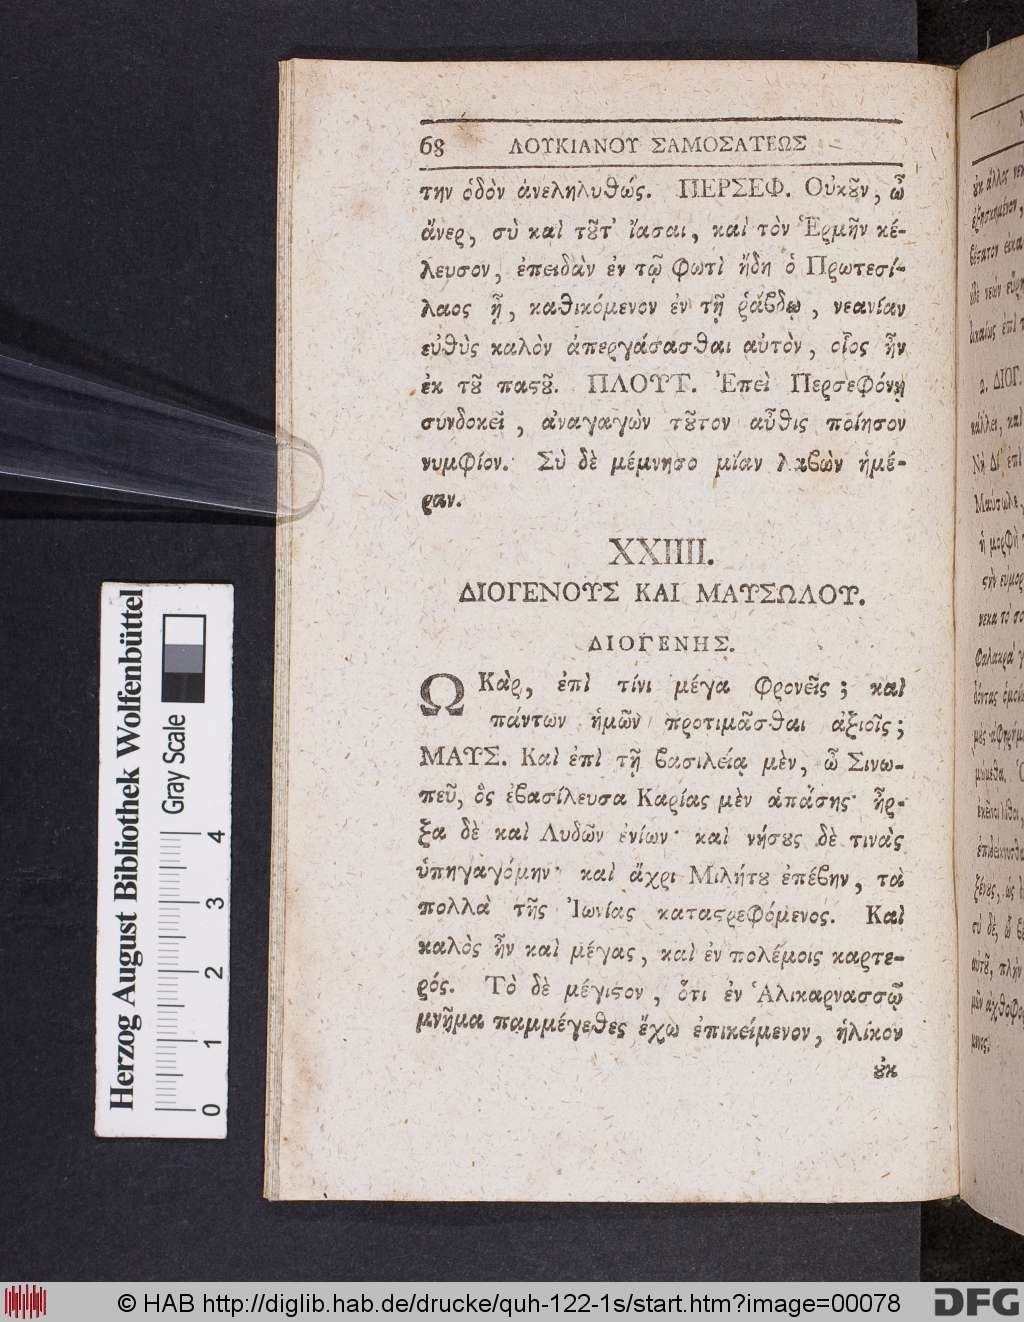 68 ΛΟΥΚΙΑΝΟΥ ΣΑΜΟΣΑΤΕΩΣ
την ὁδὸν ἀνεληλυθώς. ΠΕΡΣΕΦ. Οὐκȣ̃ν, ὦ
ἄνερ, σὺ καὶ τȣ̃τ᾽ ἴασαι, καὶ τὸν Ἑρμῆν κέ-
λευσον, ἐπειδὰν ἐν τῷ φωτὶ ἤδη ὁ Πρωτεσί-
λαος ᾖ, καθικόμενον ἐν τῇ ῥάβδῳ, νεανίαν
εὐθὺς καλὸν ἀπεργάσασθαι αὐτὸν, οἷος ἦν
ἐκ τȣ̃ παϛȣ̃. ΠΛΟΥΤ. Ἐπεὶ Περσεφόνῃ
συνδοκεῖ, ἀναγαγὼν τȣ̃τον αὖθις ποίησον
νυμφίον. Σὺ δὲ μέμνησο μίαν λαβὼν ἡμέ-
ραν.
XXIIII.
ΔΙΟΓΕΝΟΥΣ ΚΑΙ ΜΑΥΣΩΛΟΥ.
ΔΙΟΓΕΝΗΣ.
Ω Κὰρ, ἐπὶ τίνι μέγα φρονεῖς; καὶ
πάντων ἡμῶν προτιμᾶσθαι ἀξιοῖς;
ΜΑΥΣ. Καὶ ἐπὶ τῇ βασιλείᾳ μὲν, ὦ Σινω-
πεῦ, ὃς ἐβασίλευσα Καρίας μὲν ἁπάσης· ἦρ-
ξα δὲ καὶ Λυδῶν ἐνίων· καὶ νήσȣς δὲ τινὰς
ὑπηγαγόμην· καὶ ἄχρι Μιλήτȣ ἐπέβην, τὰ
πολλὰ τῆς Ἰωνίας καταϛρεφόμενος. Καὶ
καλὸς ἦν καὶ μέγας, καὶ ἐν πολέμοις καρτε-
ρός. Τὸ δὲ μέγιϛον, ὅτι ἐν Ἁλικαρνασσῷ
μνῆμα παμμέγεθες ἔχω ἐπικείμενον, ἡλίκον
ȣκ
Herzog August Bibliothek Wolfenbüttel
Gray Scale
0 1 2 3 4
© HAB http://diglib.hab.de/drucke/quh-122-1s/start.htm?image=00078
DFG